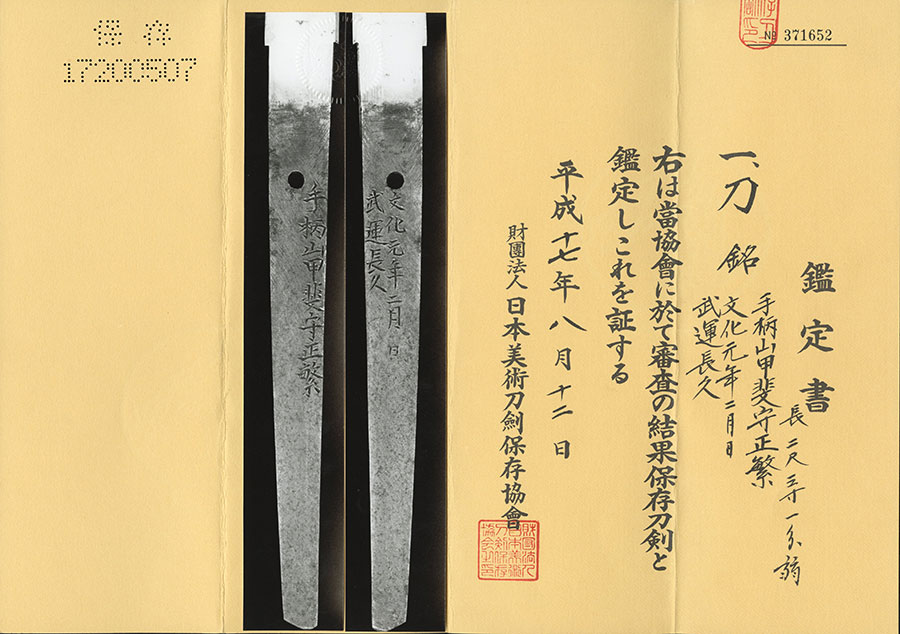 鑑定書
一、刀 銘 手柄山甲斐守正繁
文化元年二月日
武運長久
長二尺三寸一分弱
右は當協會に於て審査の結果保存刀剣と
鑑定しこれを証する
平成十七年八月十二日
財團法人 日本美術刀劍保存協會
№ 371652
保存
17200507
手柄山甲斐守正繁
文化元年二月日
武運長久